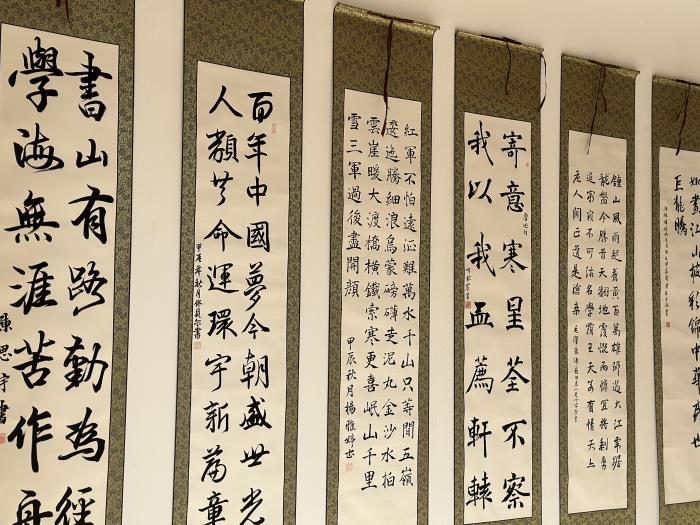 書山有路勤為徑
學海無涯苦作舟
思宇書
百年中國夢今朝盛世光
人類共命運環宇新篇章
甲辰年秋月
紅軍不怕遠征難萬水千山只等間五嶺
逶迤騰細浪烏蒙磅礴走泥丸金沙水拍
雲崖暖大渡橋橫鐵索寒更喜岷山千里
雪三軍過後盡開顏
甲辰秋月楊雅婷書
寄意寒星荃不察
我以我血薦軒轅
魯迅詩
鍾山風雨起蒼黃百萬雄師過大江虎踞
龍盤今勝昔天翻地覆慨而慷宜將剩勇
追窮寇不可沽名學霸王天若有情天亦
老人間正道是滄桑
毛澤東詩
如畫江山披彩錦中華盛世
巨龍騰